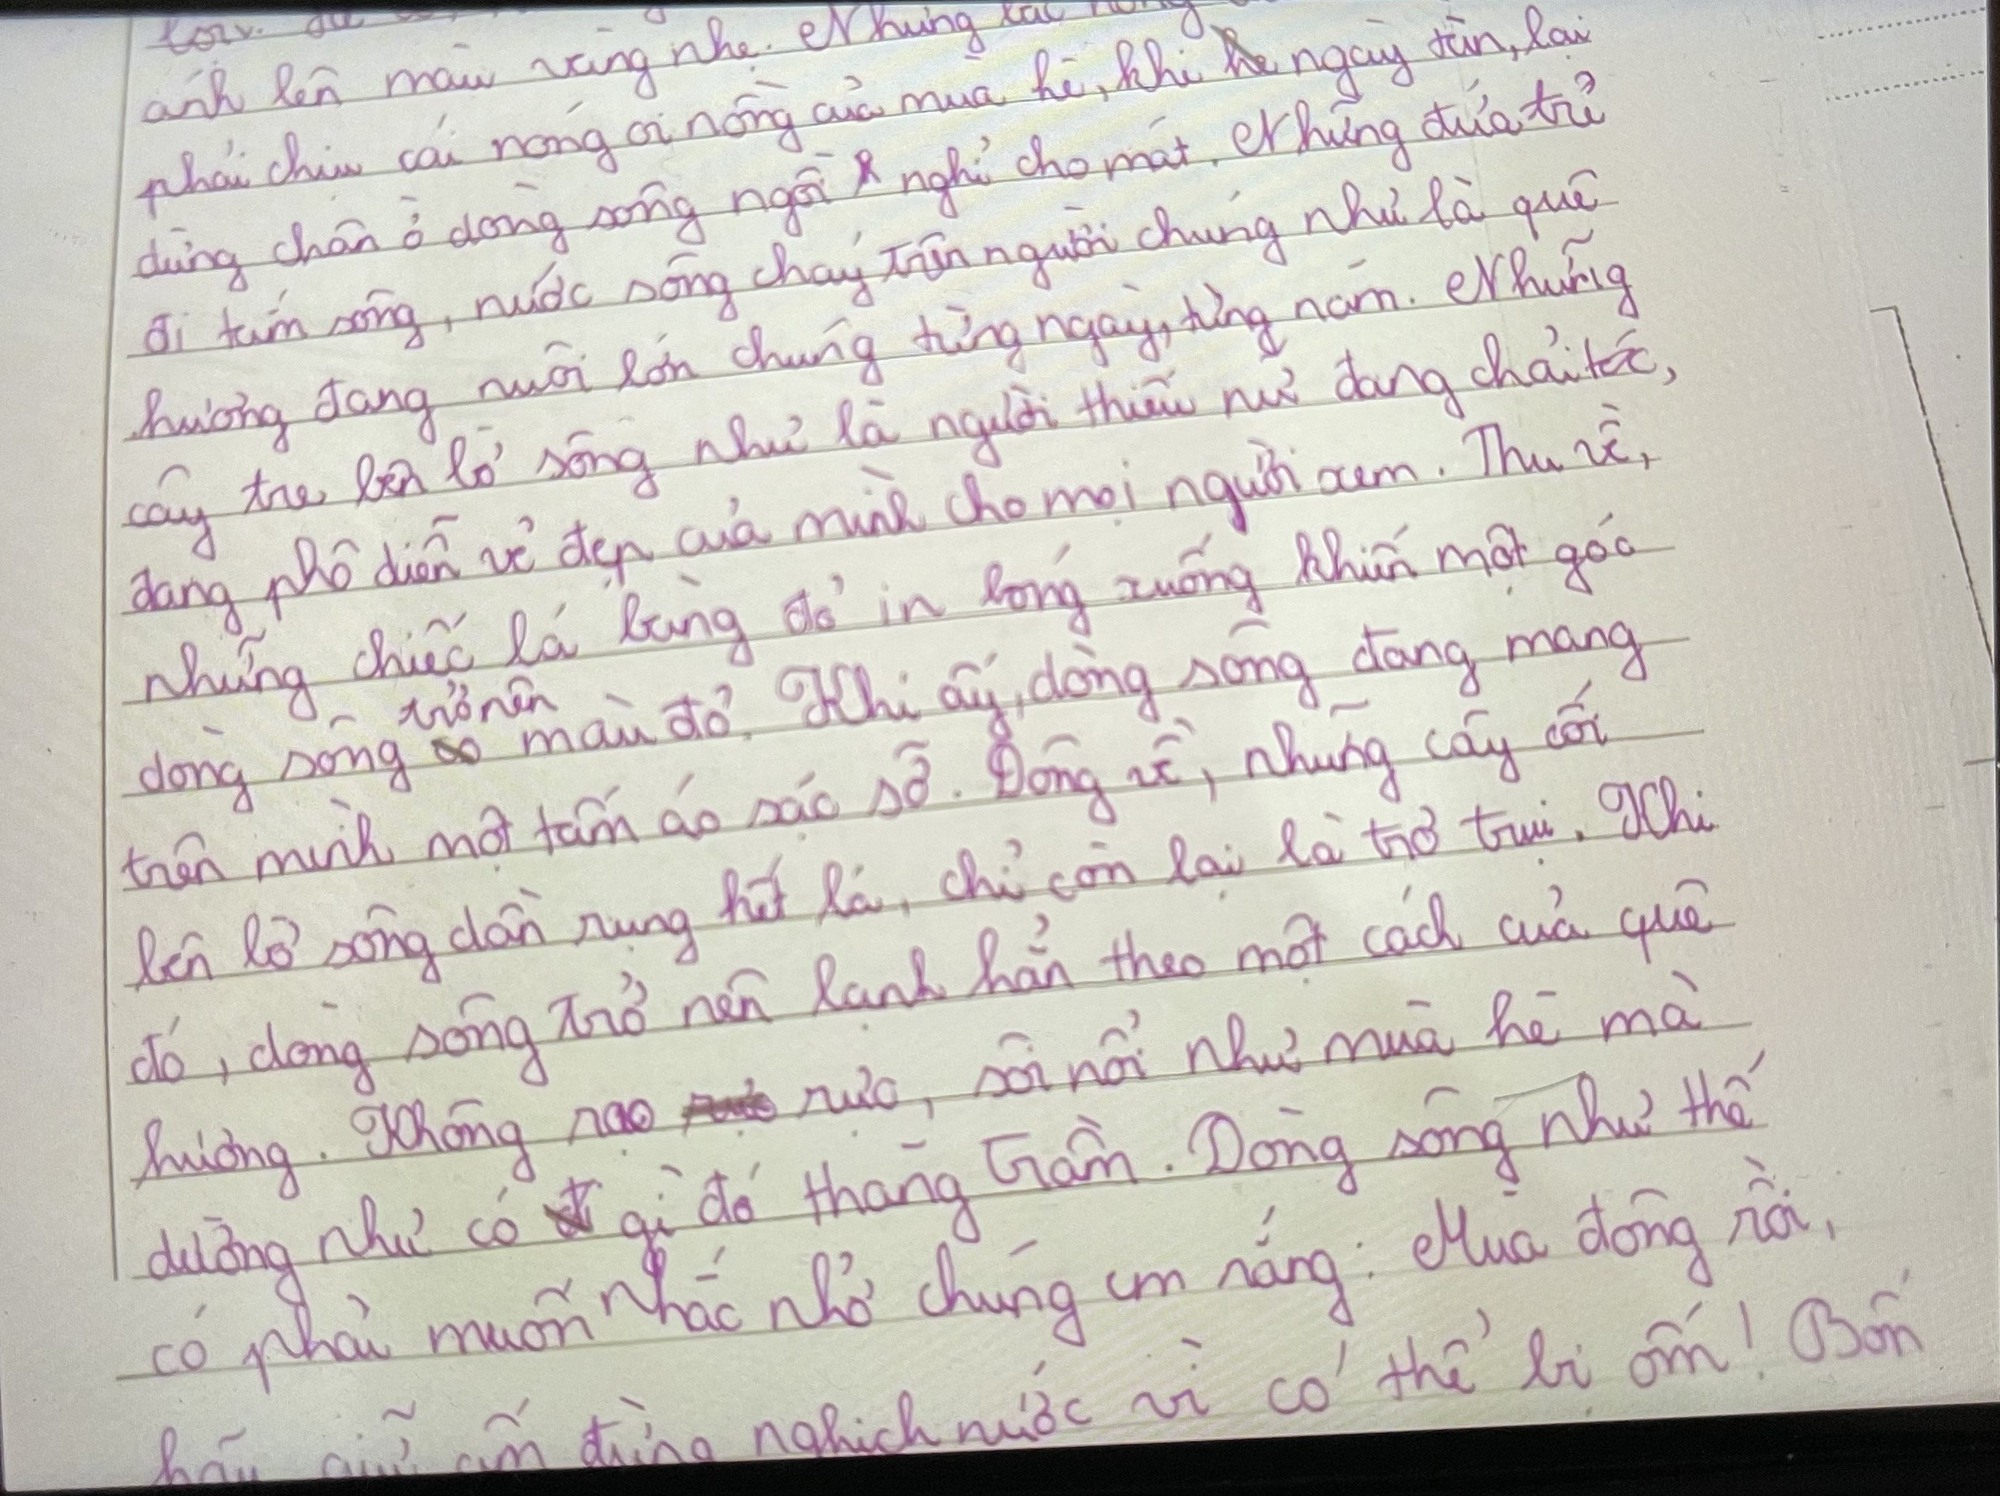 ánh lên màu vàng nhẹ. Những bác nông
phải chịu cái nóng oi nồng của mùa hè, khi ngày tàn, lại
dừng chân ở dòng sông ngồi nghỉ cho mát. Những đứa trẻ
đi tắm sông, nước sông chảy trên người chúng như là quê
hương đang nuôi lớn chúng từng ngày, từng năm. Những
cây tre bên bờ sông như là người thiếu nữ đang chải tóc,
đang phô diễn vẻ đẹp của mình cho mọi người xem. Thu về,
những chiếc lá bàng đỏ in bóng xuống khiến một góc
dòng sông trở nên màu đỏ. Khi ấy, dòng sông đang mang
trên mình một tấm áo sặc sỡ. Đông về, những cây cối
bên bờ sông dần rụng hết lá, chỉ còn lại là trơ trụi. Khi
đó, dòng sông trở nên lạnh hẳn theo một cách của quê
hương. Không nạo rực, sôi nổi như mùa hè mà
dường như có gì đó thăng trầm. Dòng sông như thế
có phải muốn nhắc nhở chúng em rằng: Mùa đông rồi,
hãy giữ ấm đừng nghịch nước vì có thể bị ốm! Bốn